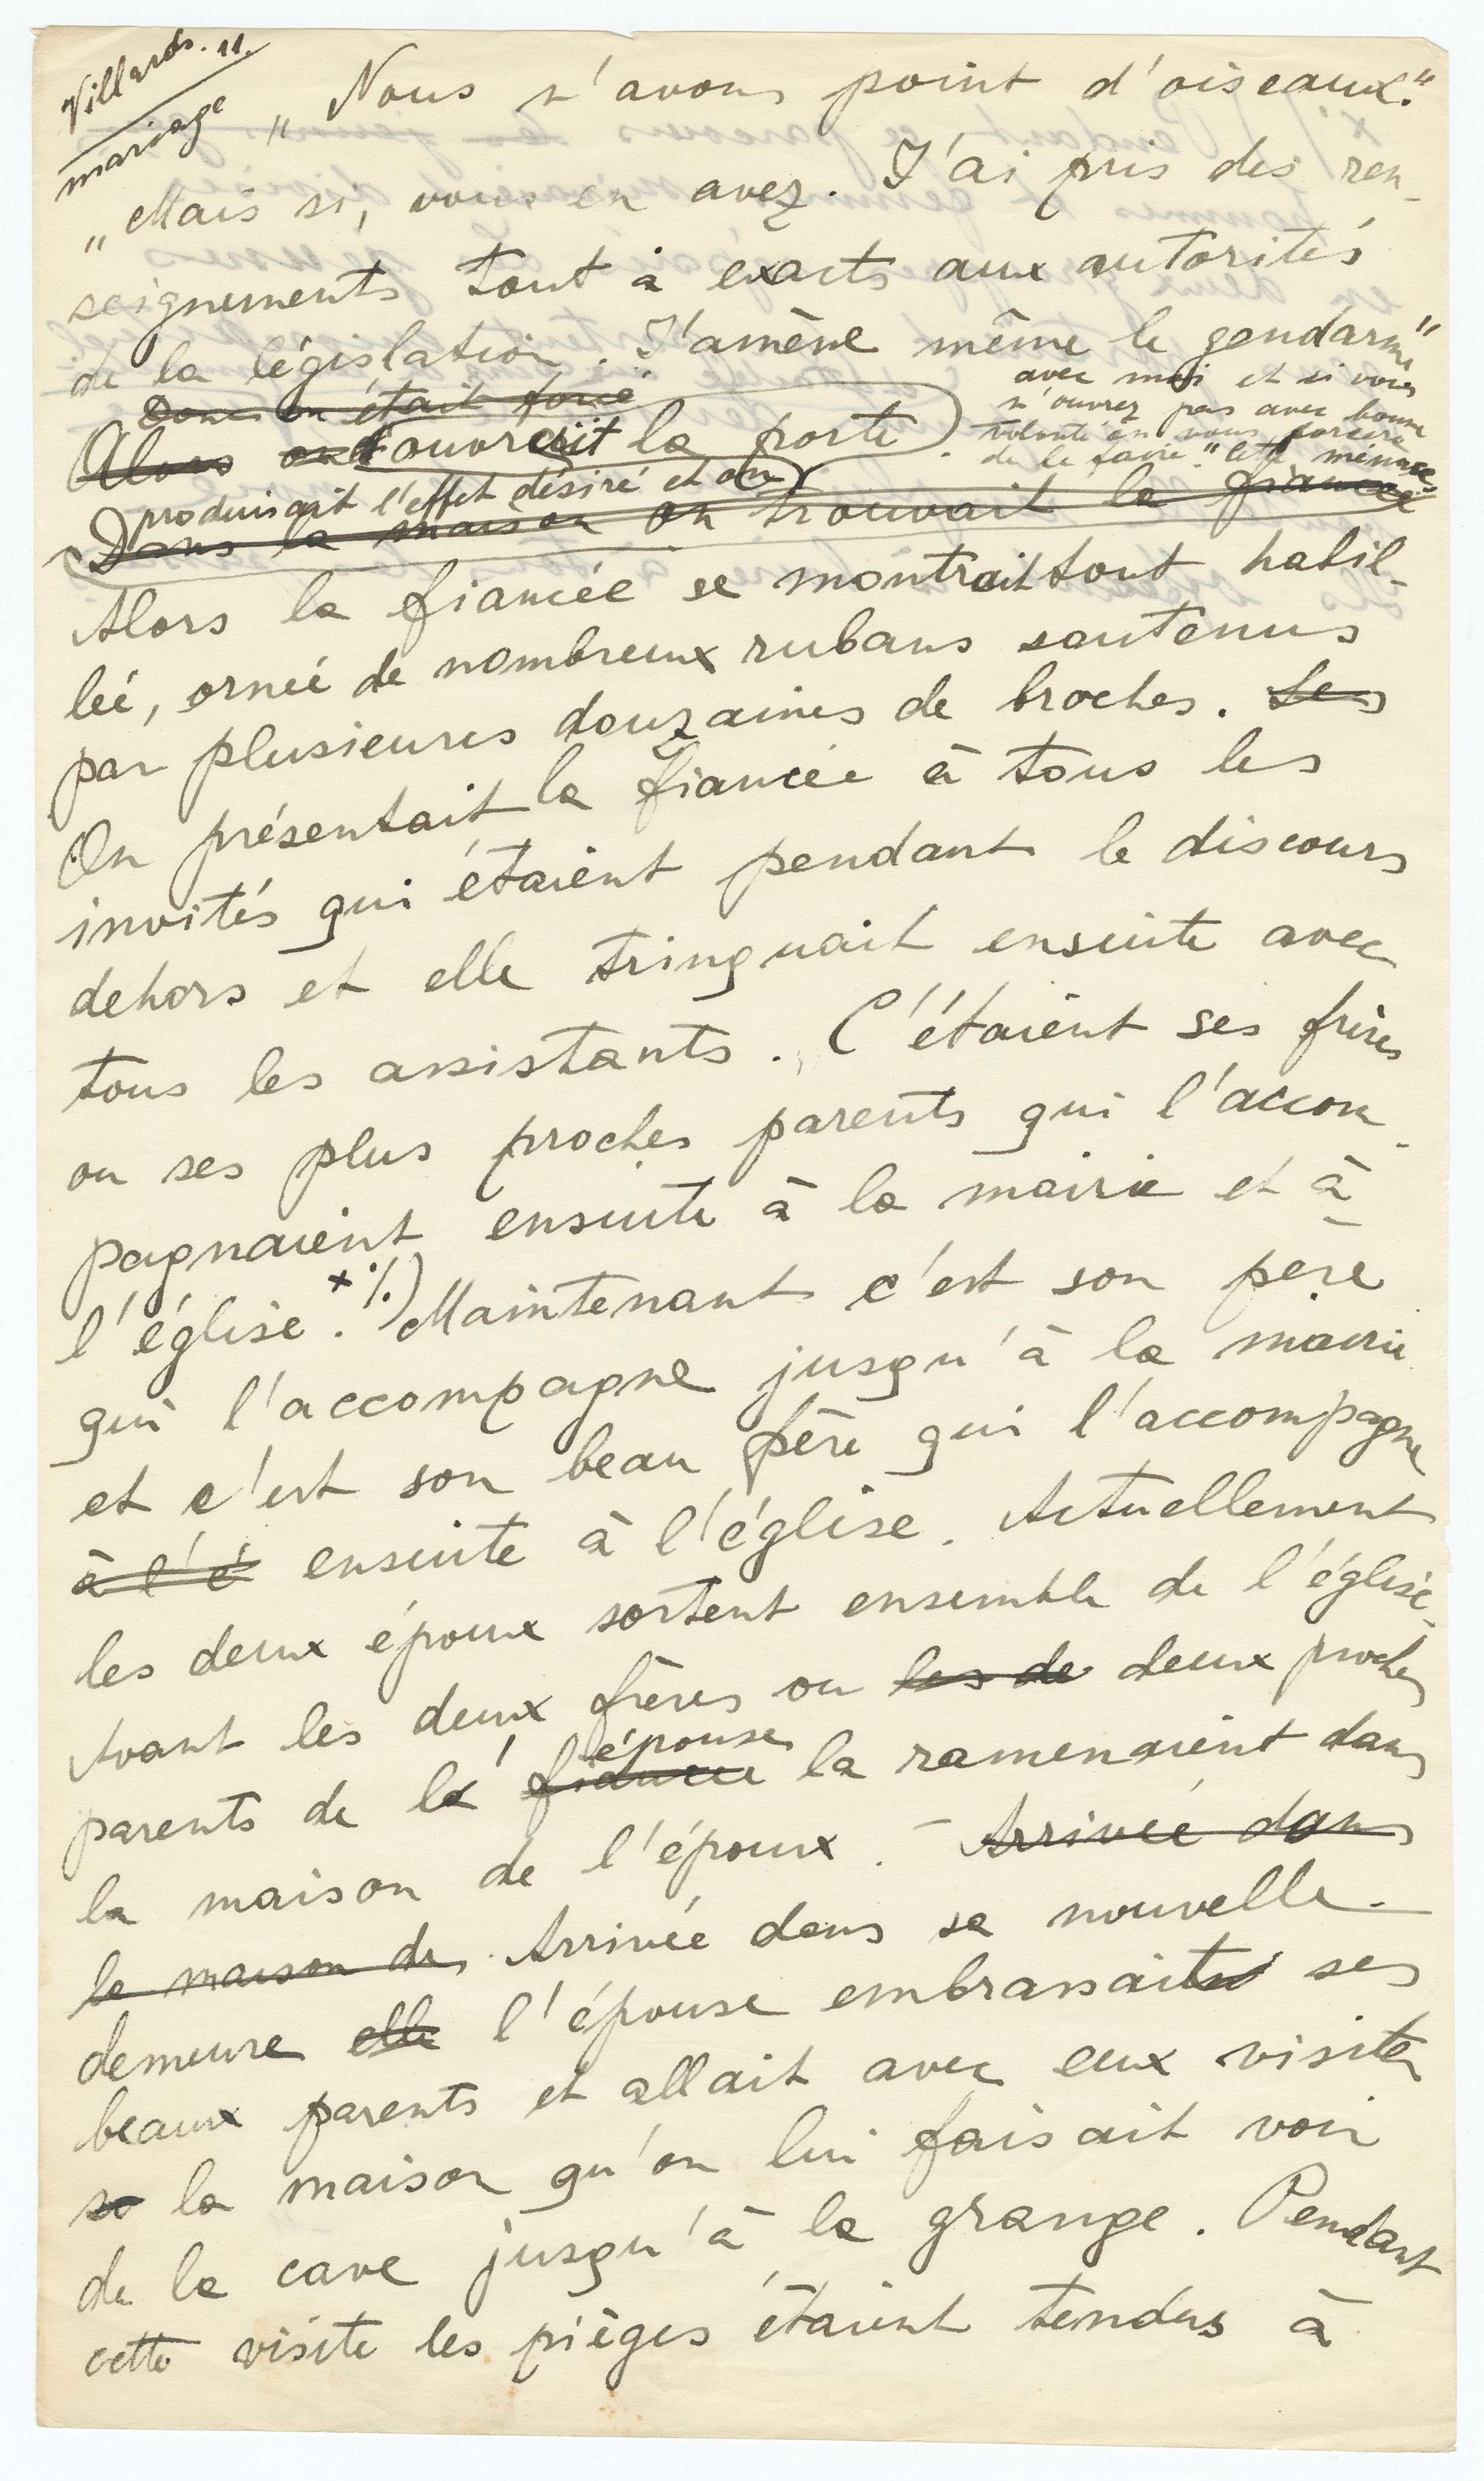 Villards. 11.
mariage
„Nous n'avons point d'oiseaux."
„Mais si, vous en avez. J'ai pris des ren-
seignements tout à exacts aux autorités
de la législation. J'amène même le gendarme"
avec moi et si vous
n'ouvrez pas avec bonne
volonté on vous forcera
de le faire." Cette menace
Donc on était forcé
Alors on ouvrait la porte.
produisait l'effet désiré et on
Dans la maison on trouvait la fiancée
Alors la fiancée se montrait tout habil-
lée, ornée de nombreux rubans soutenus
par plusieures douzaines de broches. Les
On présentait la fiancée à tous les
invités qui étaient pendant le discours
dehors et elle tringuait ensuite avec
tous les assistants. C'étaient ses frères
ou ses plus proches parents qui l'accom-
pagnaient ensuite à la mairie et à
l'église. x ·/.) Maintenant c'est son père
qui l'accompagne jusqu'à la mairie
et c'est son beau père qui l'accompagne
à l'é ensuite à l'église. Actuellement
les deux époux sortent ensemble de l'église.
Avant les deux frères ou les de deux proches
épouse
parents de la fiancée la ramenaient dans
la maison de l'époux. - Arrivée dans
la maison de Arrivée dans sa nouvelle
demeure elle l'épouse embrassait ses
beaux parents et allait avec eux visiter
sa la maison qu'on lui faisait voir
de la cave jusqu'à la grange. Pendant
cette visite les pièges étaient tendus à